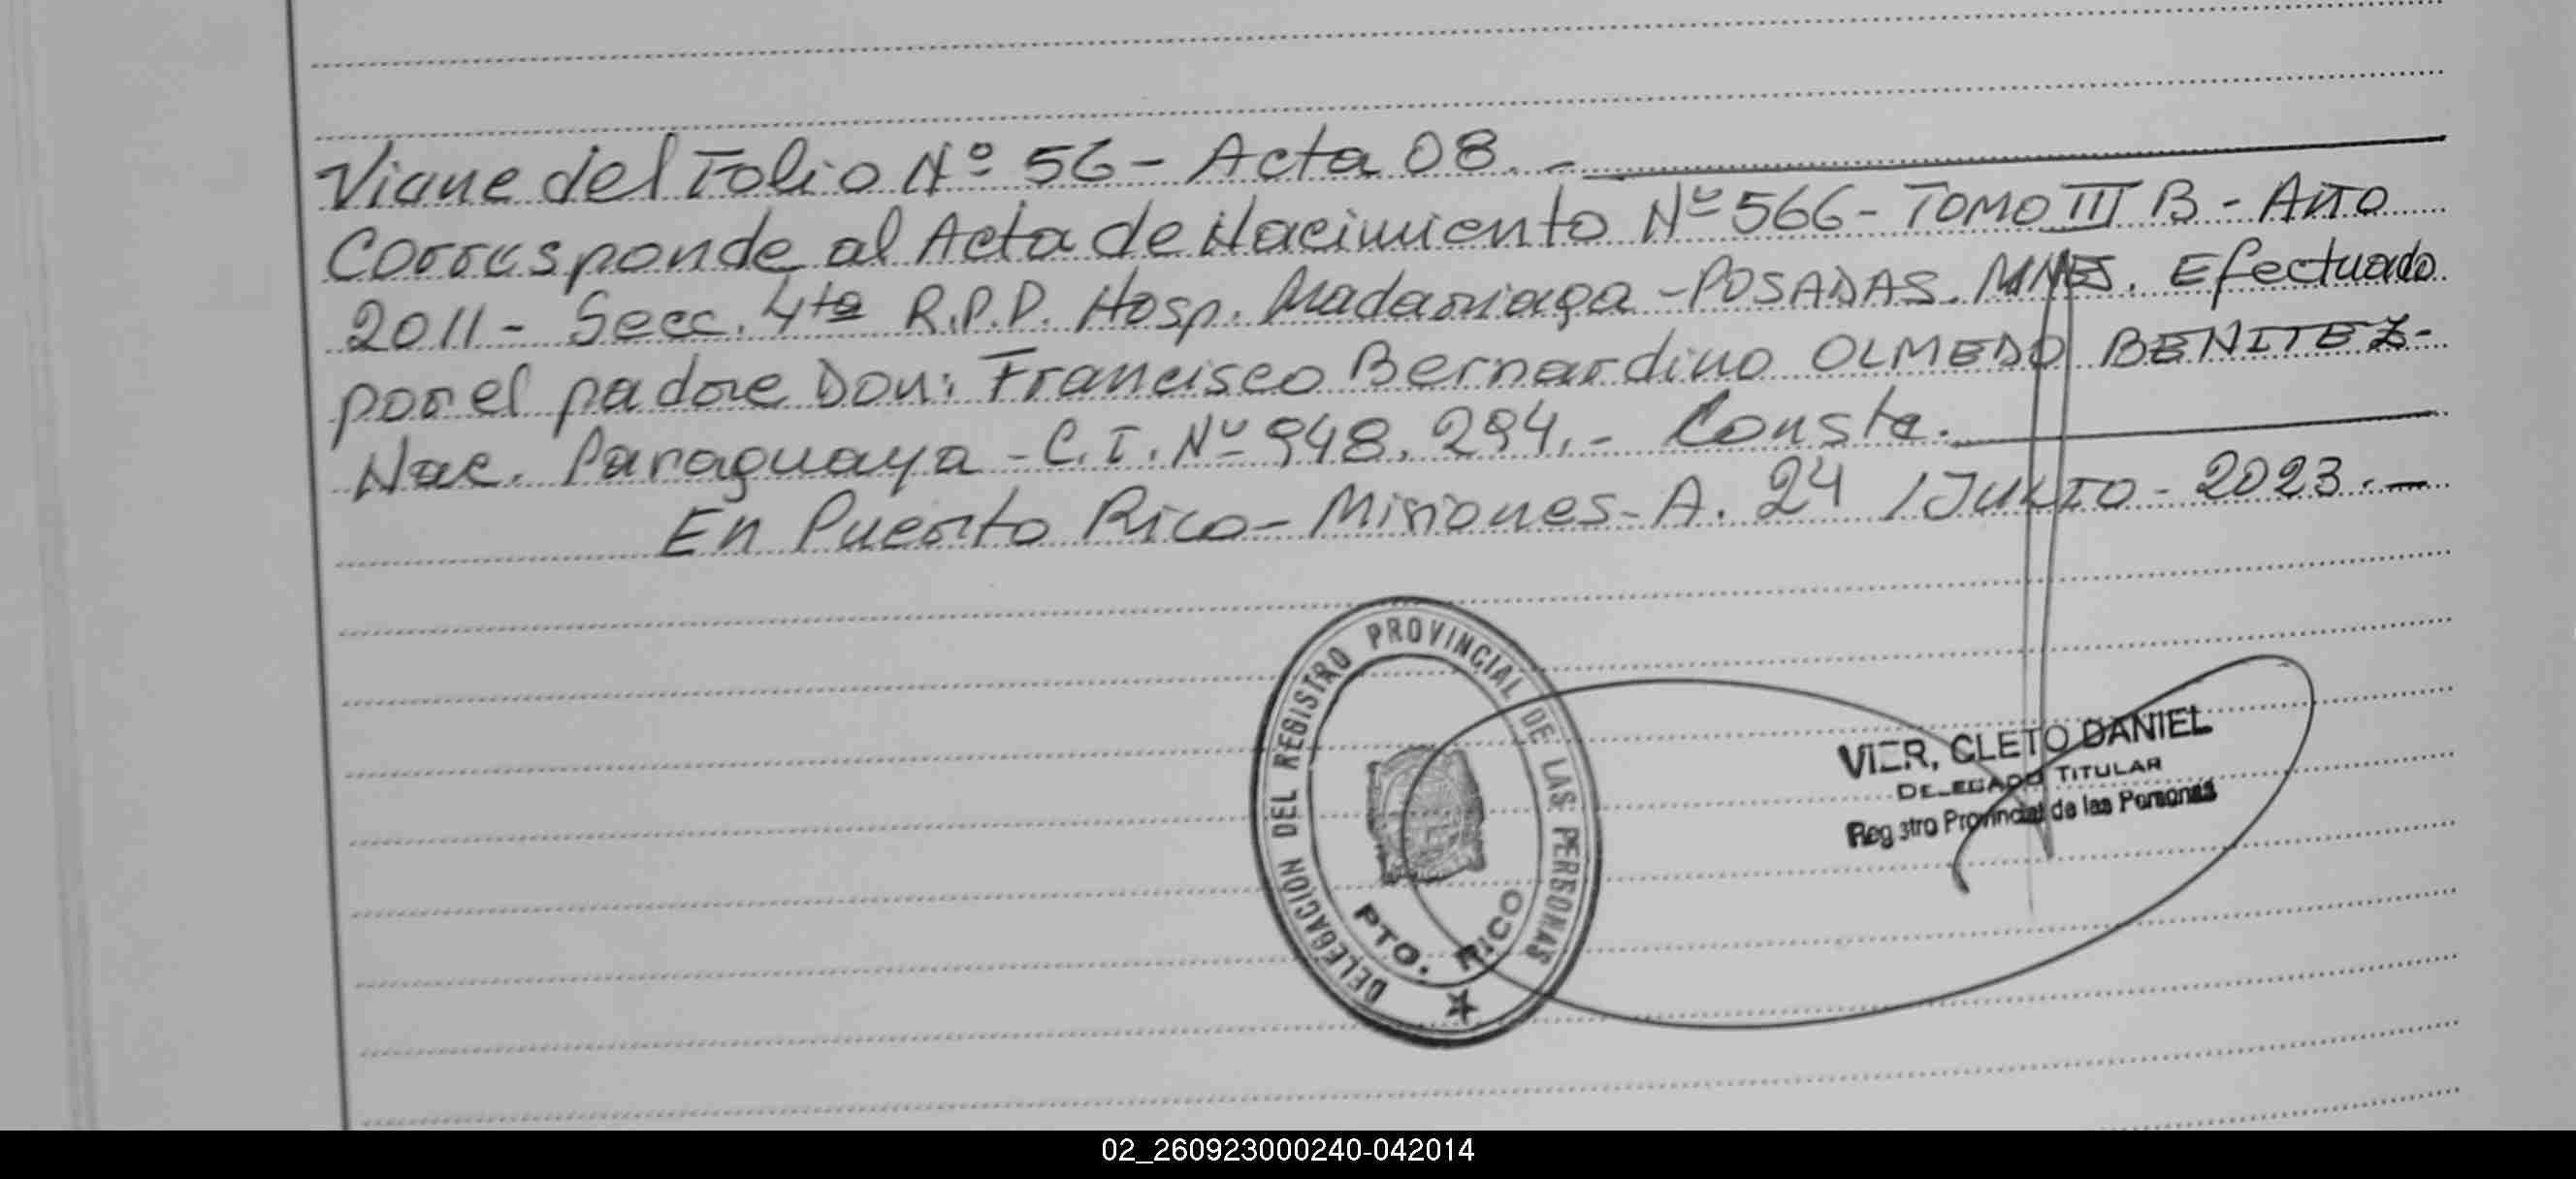 Viene del Folio Nº 56 - Acta 08. -
Corresponde al Acta de Nacimiento Nº 566 - TOMO III B - Año
2011 - Secc. 4ta R.P.P. Hosp. Madariaga - POSADAS. MNES. Efectuado
por el padre Don: Francisco Bernardino OLMEDO BENITEZ -
Nac. Paraguaya - C.I. Nº 948.294. - Conste.
En Puerto Rico - Misiones - A. 24 / JULIO - 2023. -
DELEGACION DEL REGISTRO PROVINCIAL DE LAS PERSONAS
PTO. RICO
VIER, CLETO DANIEL
DELEGADO TITULAR
Registro Provincial de las Personas
02_260923000240-042014